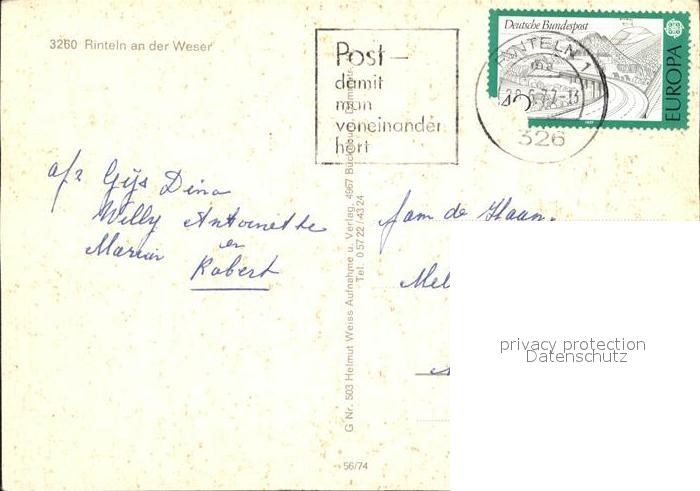 3260 Rinteln an der Weser
Post –
damit
man
voneinander
hört
Deutsche Bundespost
EUROPA
40
RINTELN 1
326
afz Gijs Dina
Willy Antoinette
Marian en
Robert
G Nr. 503 Helmut Weiss Aufnahme u. Verlag, 4967 Bückeburg,
Tel. 0 57 22 / 43 24
Fam de Haan.
Mel
privacy protection
Datenschutz
56/74